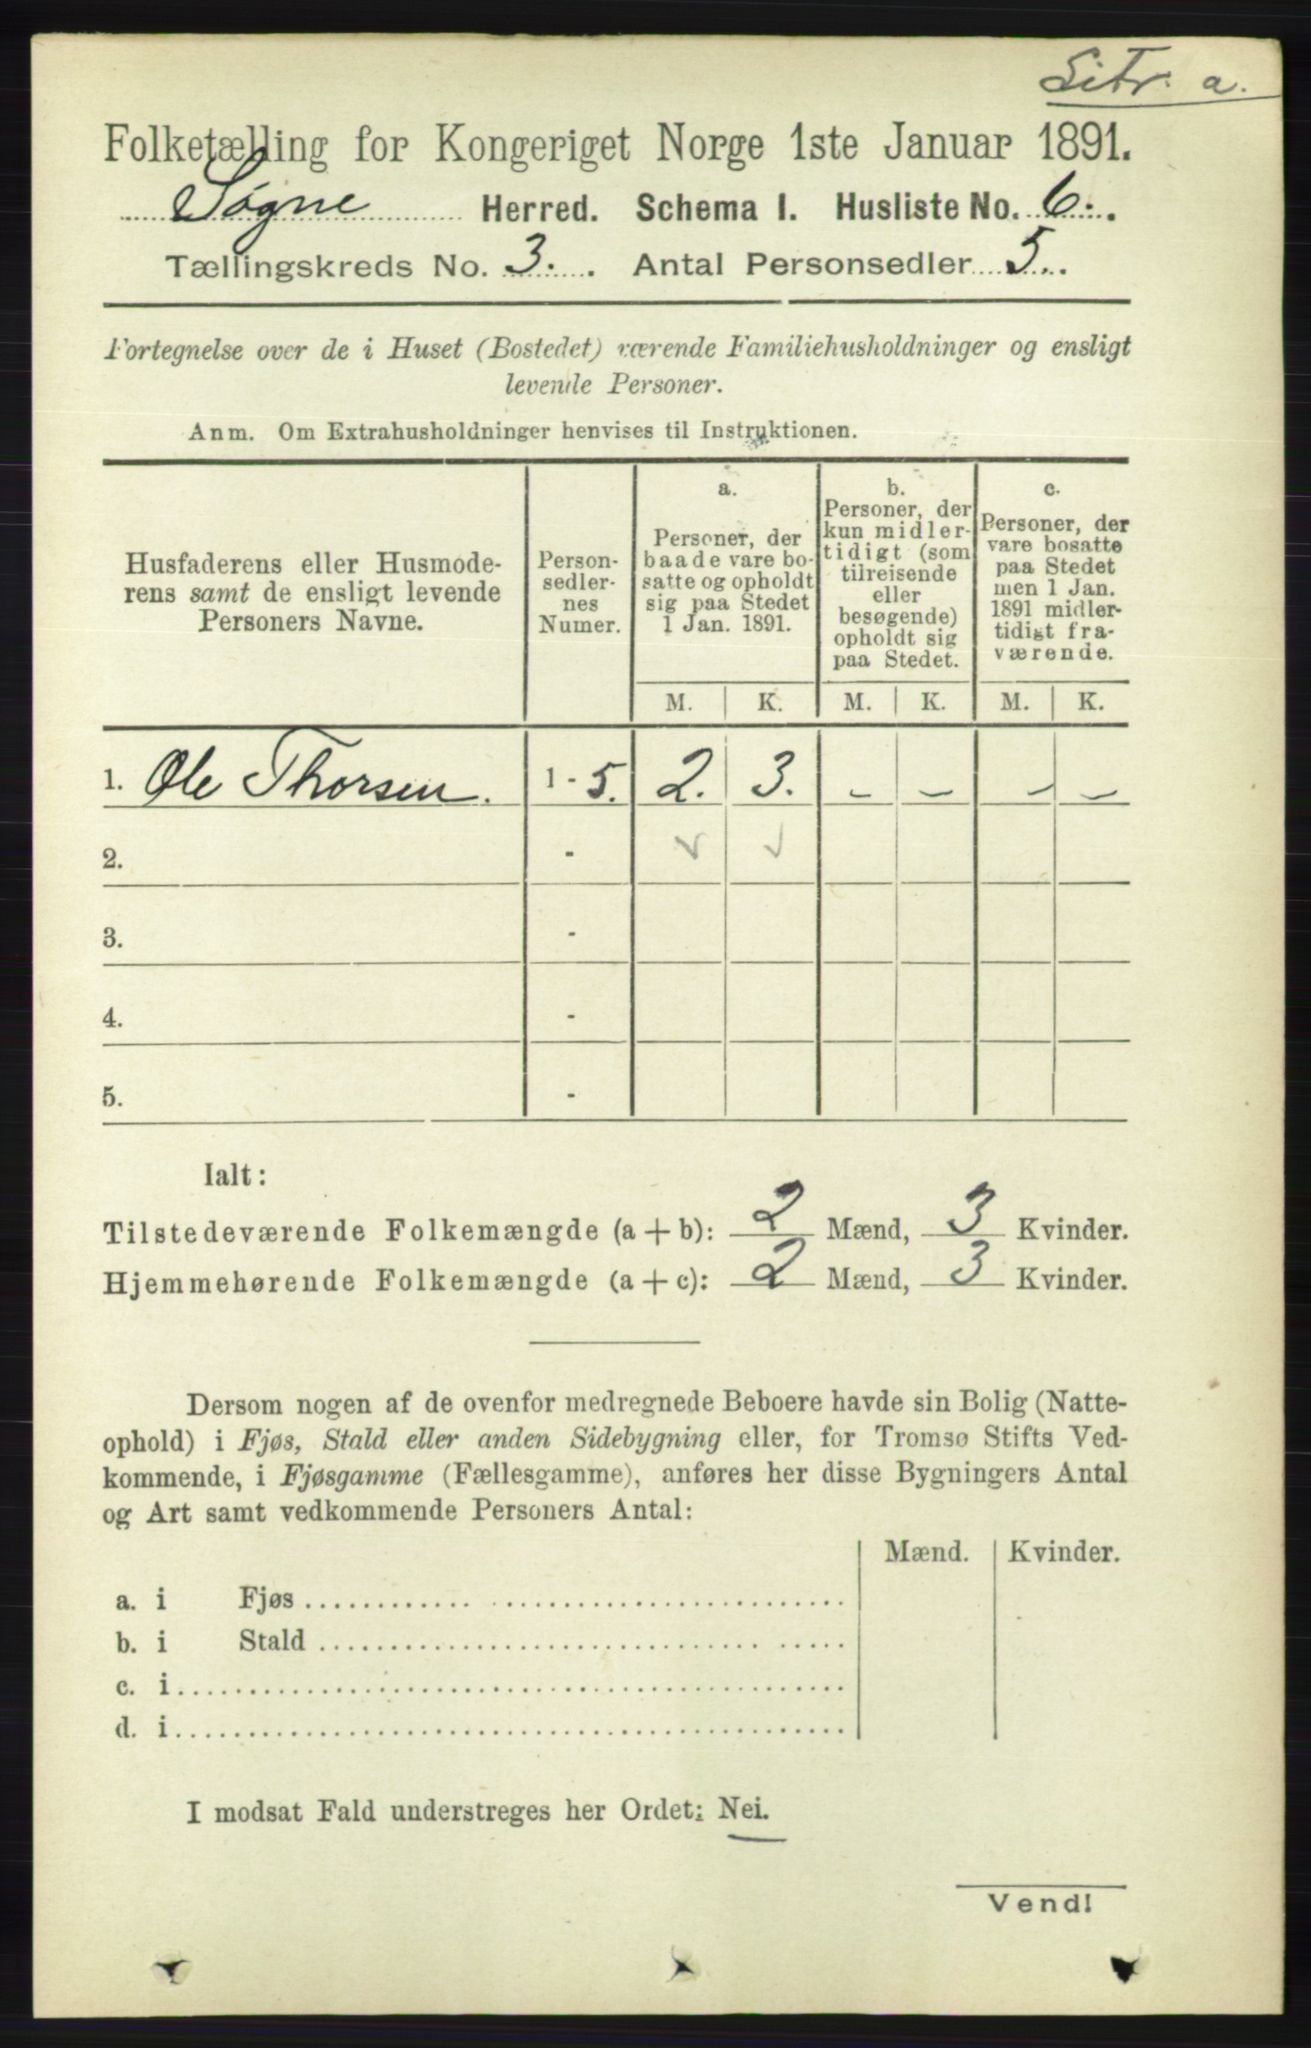 Litr. a.
Folketælling for Kongeriget Norge 1ste Januar 1891.
Søgne Herred. Schema I. Husliste No. 6.
Tællingskreds No. 3. Antal Personsedler 5.
Fortegnelse over de i Huset (Bostedet) værende Familiehusholdninger og ensligt
levende Personer.
Anm. Om Extrahusholdninger henvises til Instruktionen.
Husfaderens eller Husmode-
rens samt de ensligt levende
Personers Navne.
Person-
sedler-
nes
Numer.
a.
Personer, der
baade vare bo-
satte og opholdt
sig paa Stedet
1 Jan. 1891.
b.
Personer, der
kun midler-
tidigt (som
tilreisende
eller
besøgende)
opholdt sig
paa Stedet.
c.
Personer, der
vare bosatte
paa Stedet
men 1 Jan.
1891 midler-
tidigt fra-
værende.
M. K. M. K. M. K.
1. Ole Thorsen. 1 - 5. 2. 3. – – – –
2. -
3. -
4. -
5. -
Ialt:
Tilstedeværende Folkemængde (a + b): 2 Mænd, 3 Kvinder.
Hjemmehørende Folkemængde (a + c): 2 Mænd, 3 Kvinder.
Dersom nogen af de ovenfor medregnede Beboere havde sin Bolig (Natte-
ophold) i Fjøs, Stald eller anden Sidebygning eller, for Tromsø Stifts Ved-
kommende, i Fjøsgamme (Fællesgamme), anføres her disse Bygningers Antal
og Art samt vedkommende Personers Antal:
Mænd. Kvinder.
a. i Fjøs
b. i Stald
c. i
d. i
I modsat Fald understreges her Ordet: Nei.
Vend!